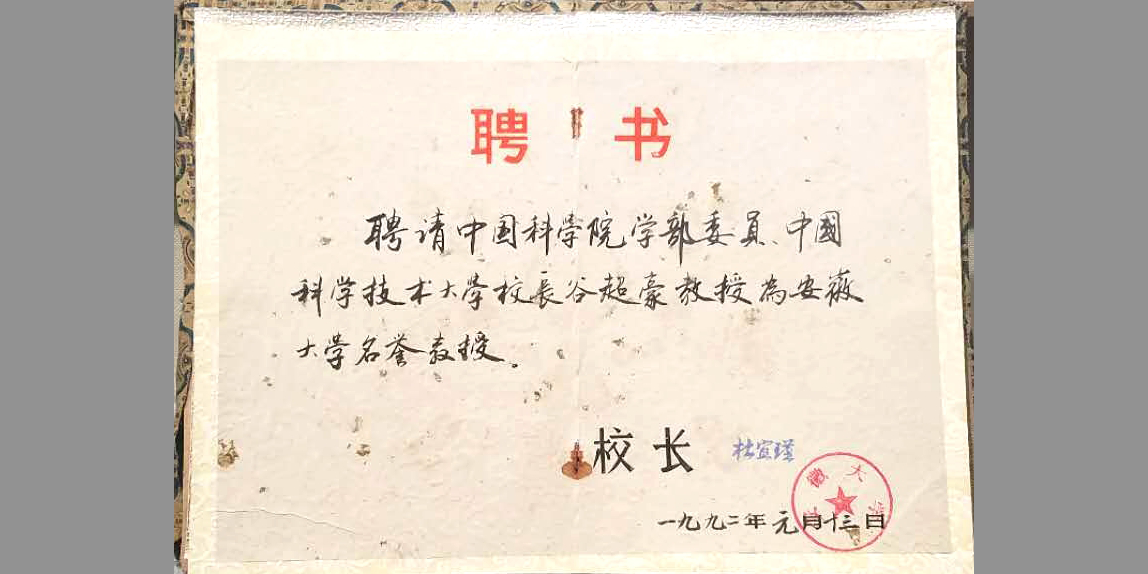 聘书
聘请中国科学院学部委員、中國
科学技术大学校長谷超豪教授為安徽
大学名誉教授。
校长 杜宜瑾
徽大学
一九九二年元月十三日